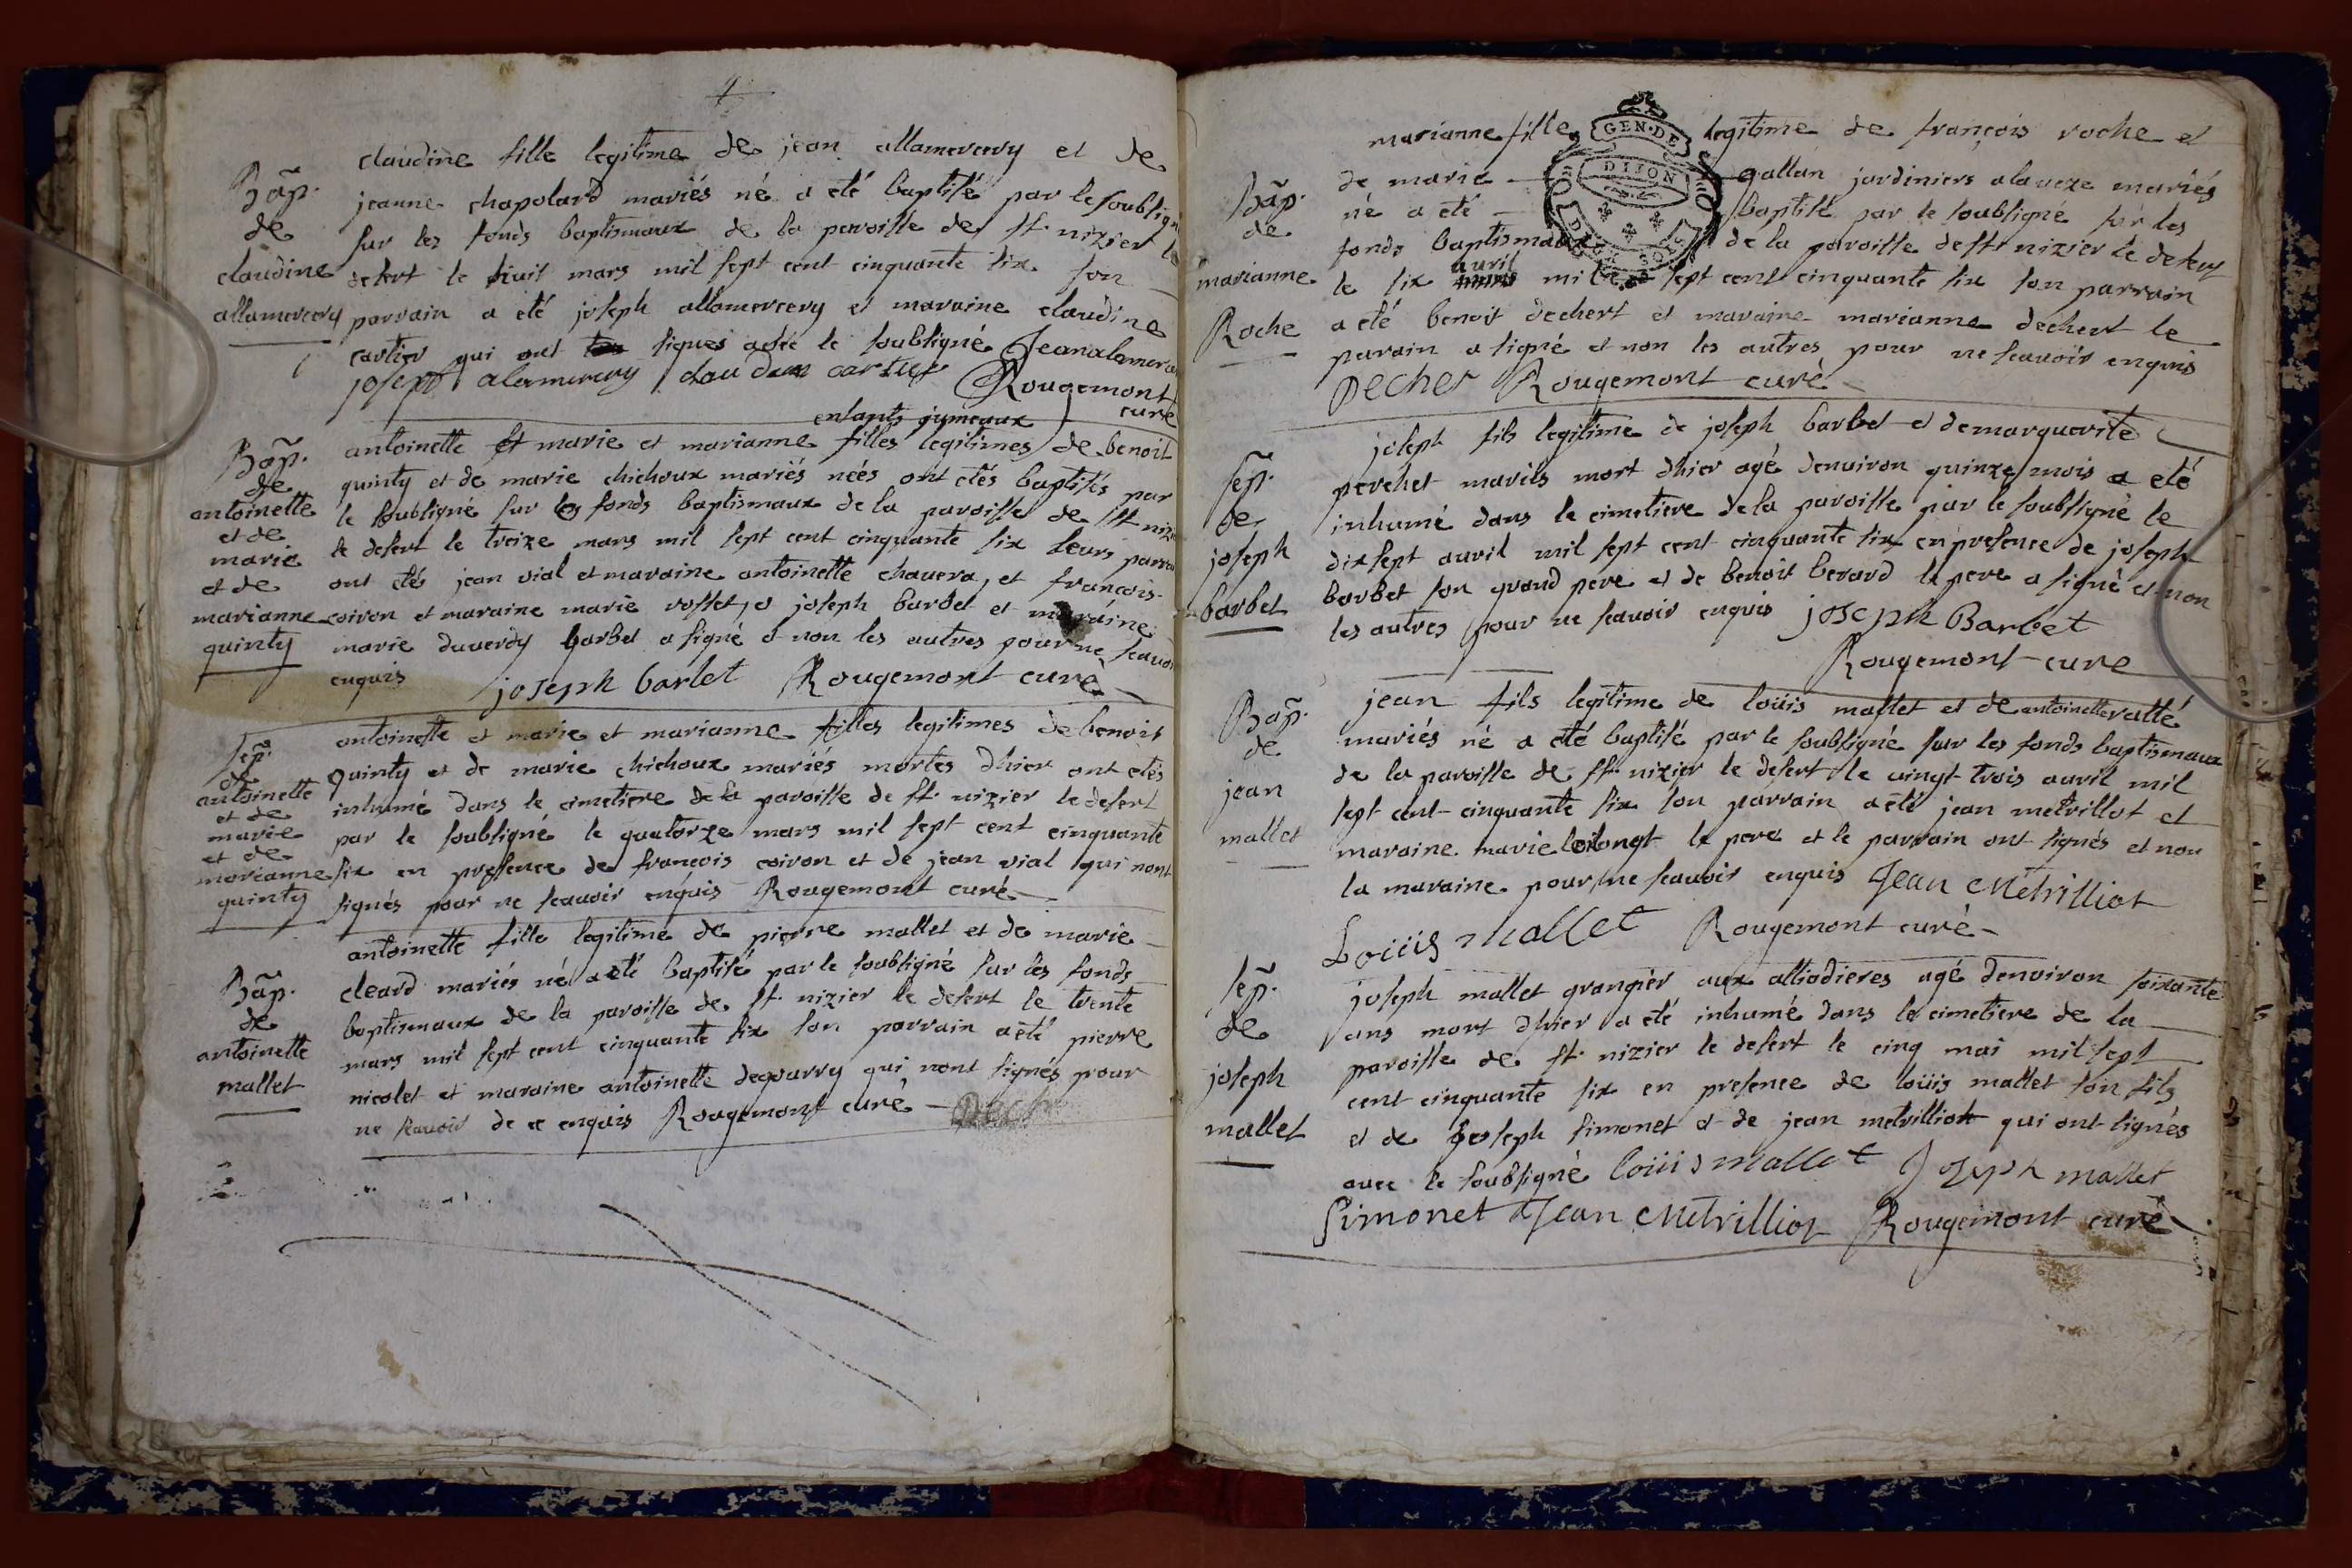 claudine fille legitime de jean allamercery et de
Bap. de claudine allamercery
jeanne chapolard mariés né a eté baptisé par le soubsigné
sur les fonds baptismaux de la paroisse de st. nizier le
desert le huit mars mil sept cent cinquante six son
parrain a eté joseph allamercery et maraine claudine
cartier qui ont signés avec le soubsigné Jean alamercery
joseph alamercery claudine cartier Rougemont
curé
enfants jumeaux
Bap. de antoinette et de marie et de marianne quinty
antoinette et marie et marianne filles legitimes de benoit
quinty et de marie chichoux mariés nées ont etés baptisés par
le soubsigné sur les fonds baptismaux de la paroisse de st nizier
le desert le treize mars mil sept cent cinquante six leurs parrains
ont etés jean vial et maraine antoinette chavera, et francois
coiron et maraine marie rosset, et joseph barbet et maraine
marie duverdy barbet a signé et non les autres pour ne scavoir
enquis joseph barbet Rougemont curé
Sep. de antoinette et de marie et de marianne quinty
antoinette et marie et marianne filles legitimes de benoit
quinty et de marie chichoux mariés mortes dhier ont etés
inhumé dans le cimetiere de la paroisse de st. nizier le desert
par le soubsigné le quatorze mars mil sept cent cinquante
six en presence de francois coiron et de jean vial qui nont
signés pour ne scavoir enquis Rougemont curé
Bap. de antoinette mallet
antoinette fille legitime de pierre mallet et de marie
cleard mariés né a eté baptisé par le soubsigné sur les fonds
baptismaux de la paroisse de st. nizier le desert le trente
mars mil sept cent cinquante six son parrain a eté pierre
nicolet et maraine antoinette dequarry qui nont signés pour
ne scavoir de ce enquis Rougemont curé
GEN. DE
DIJON
marianne fille legitime de françois roche et
Bap. de marianne Roche
de marie gallan jardiniers alaveze mariés
né a eté baptisé par le soubsigné sur les
fonds baptismaux de la paroisse de st nizier le desert
avril
le six mil sept cent cinquante six son parrain
a eté benoit dechert et maraine marianne dechert le
parain a signé et non les autres pour ne scavoir enquis
Decher Rougemont curé
Sep. de joseph barbet
joseph fils legitime de joseph barbet et de marguerite
perchet mariés mort dhier agé denviron quinze mois a eté
inhumé dans le cimetiere de la paroisse par le soubsigné le
dixsept avril mil sept cent cinquante six en presence de joseph
barbet son grand pere et de benoit berard le pere a signé et non
les autres pour ne scavoir enquis joseph Barbet
Rougemont curé
Bap. de jean mallet
jean fils legitime de loüis mallet et de antoinette vallé
mariés né a eté baptisé par le soubsigné sur les fonds baptismaux
de la paroisse de st. nizier le desert le vingt trois avril mil
sept cent cinquante six son parrain a eté jean metrillot et
maraine marie le pere et le parrain ont signés et non
la maraine pour ne scavoir enquis Jean Metrilliot
Loüis mallet Rougemont curé
Sep. de joseph mallet
joseph mallet grangier aux alliodieres agé denviron soixante
ans mort dhier a eté inhumé dans le cimetiere de la
paroisse de st. nizier le desert le cinq mai mil sept
cent cinquante six en presence de loüis mallet son fils
et de joseph simonet et de jean metrilliot qui ont signés
avec le soubsigné loüis mallet Joseph mallet
Simonet Jean Metrilliot Rougemont curé